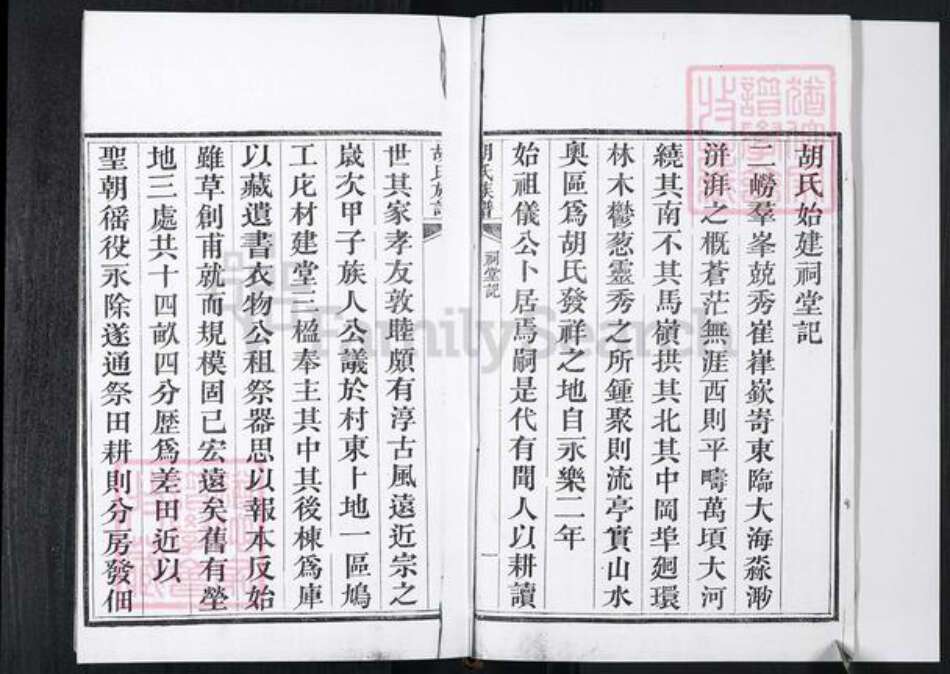 胡氏始建祠堂記
二嶗羣峯競秀崔嵂嶔嵜東臨大海淼渺
洴湃之概蒼茫無涯西則平疇萬頃大河
繞其南不其馬嶺拱其北其中岡埠廻環
林木鬱葱靈秀之所鍾聚則流亭實山水
奧區爲胡氏發祥之地自永樂二年
始祖儀公卜居焉嗣是代有聞人以耕讀
胡氏族譜
祠堂記
一
世其家孝友敦睦頗有淳古風遠近宗之
歲次甲子族人公議於村東上地一區鳩
工庀材建堂三楹奉主其中其後棟爲庫
以藏遺書衣物公租祭器思以報本反始
雖草創甫就而規模固已宏遠矣舊有塋
地三處共十四畝四分歷爲差田近以
聖朝徭役永除遂通祭田耕則分房發佃
FamilySearch